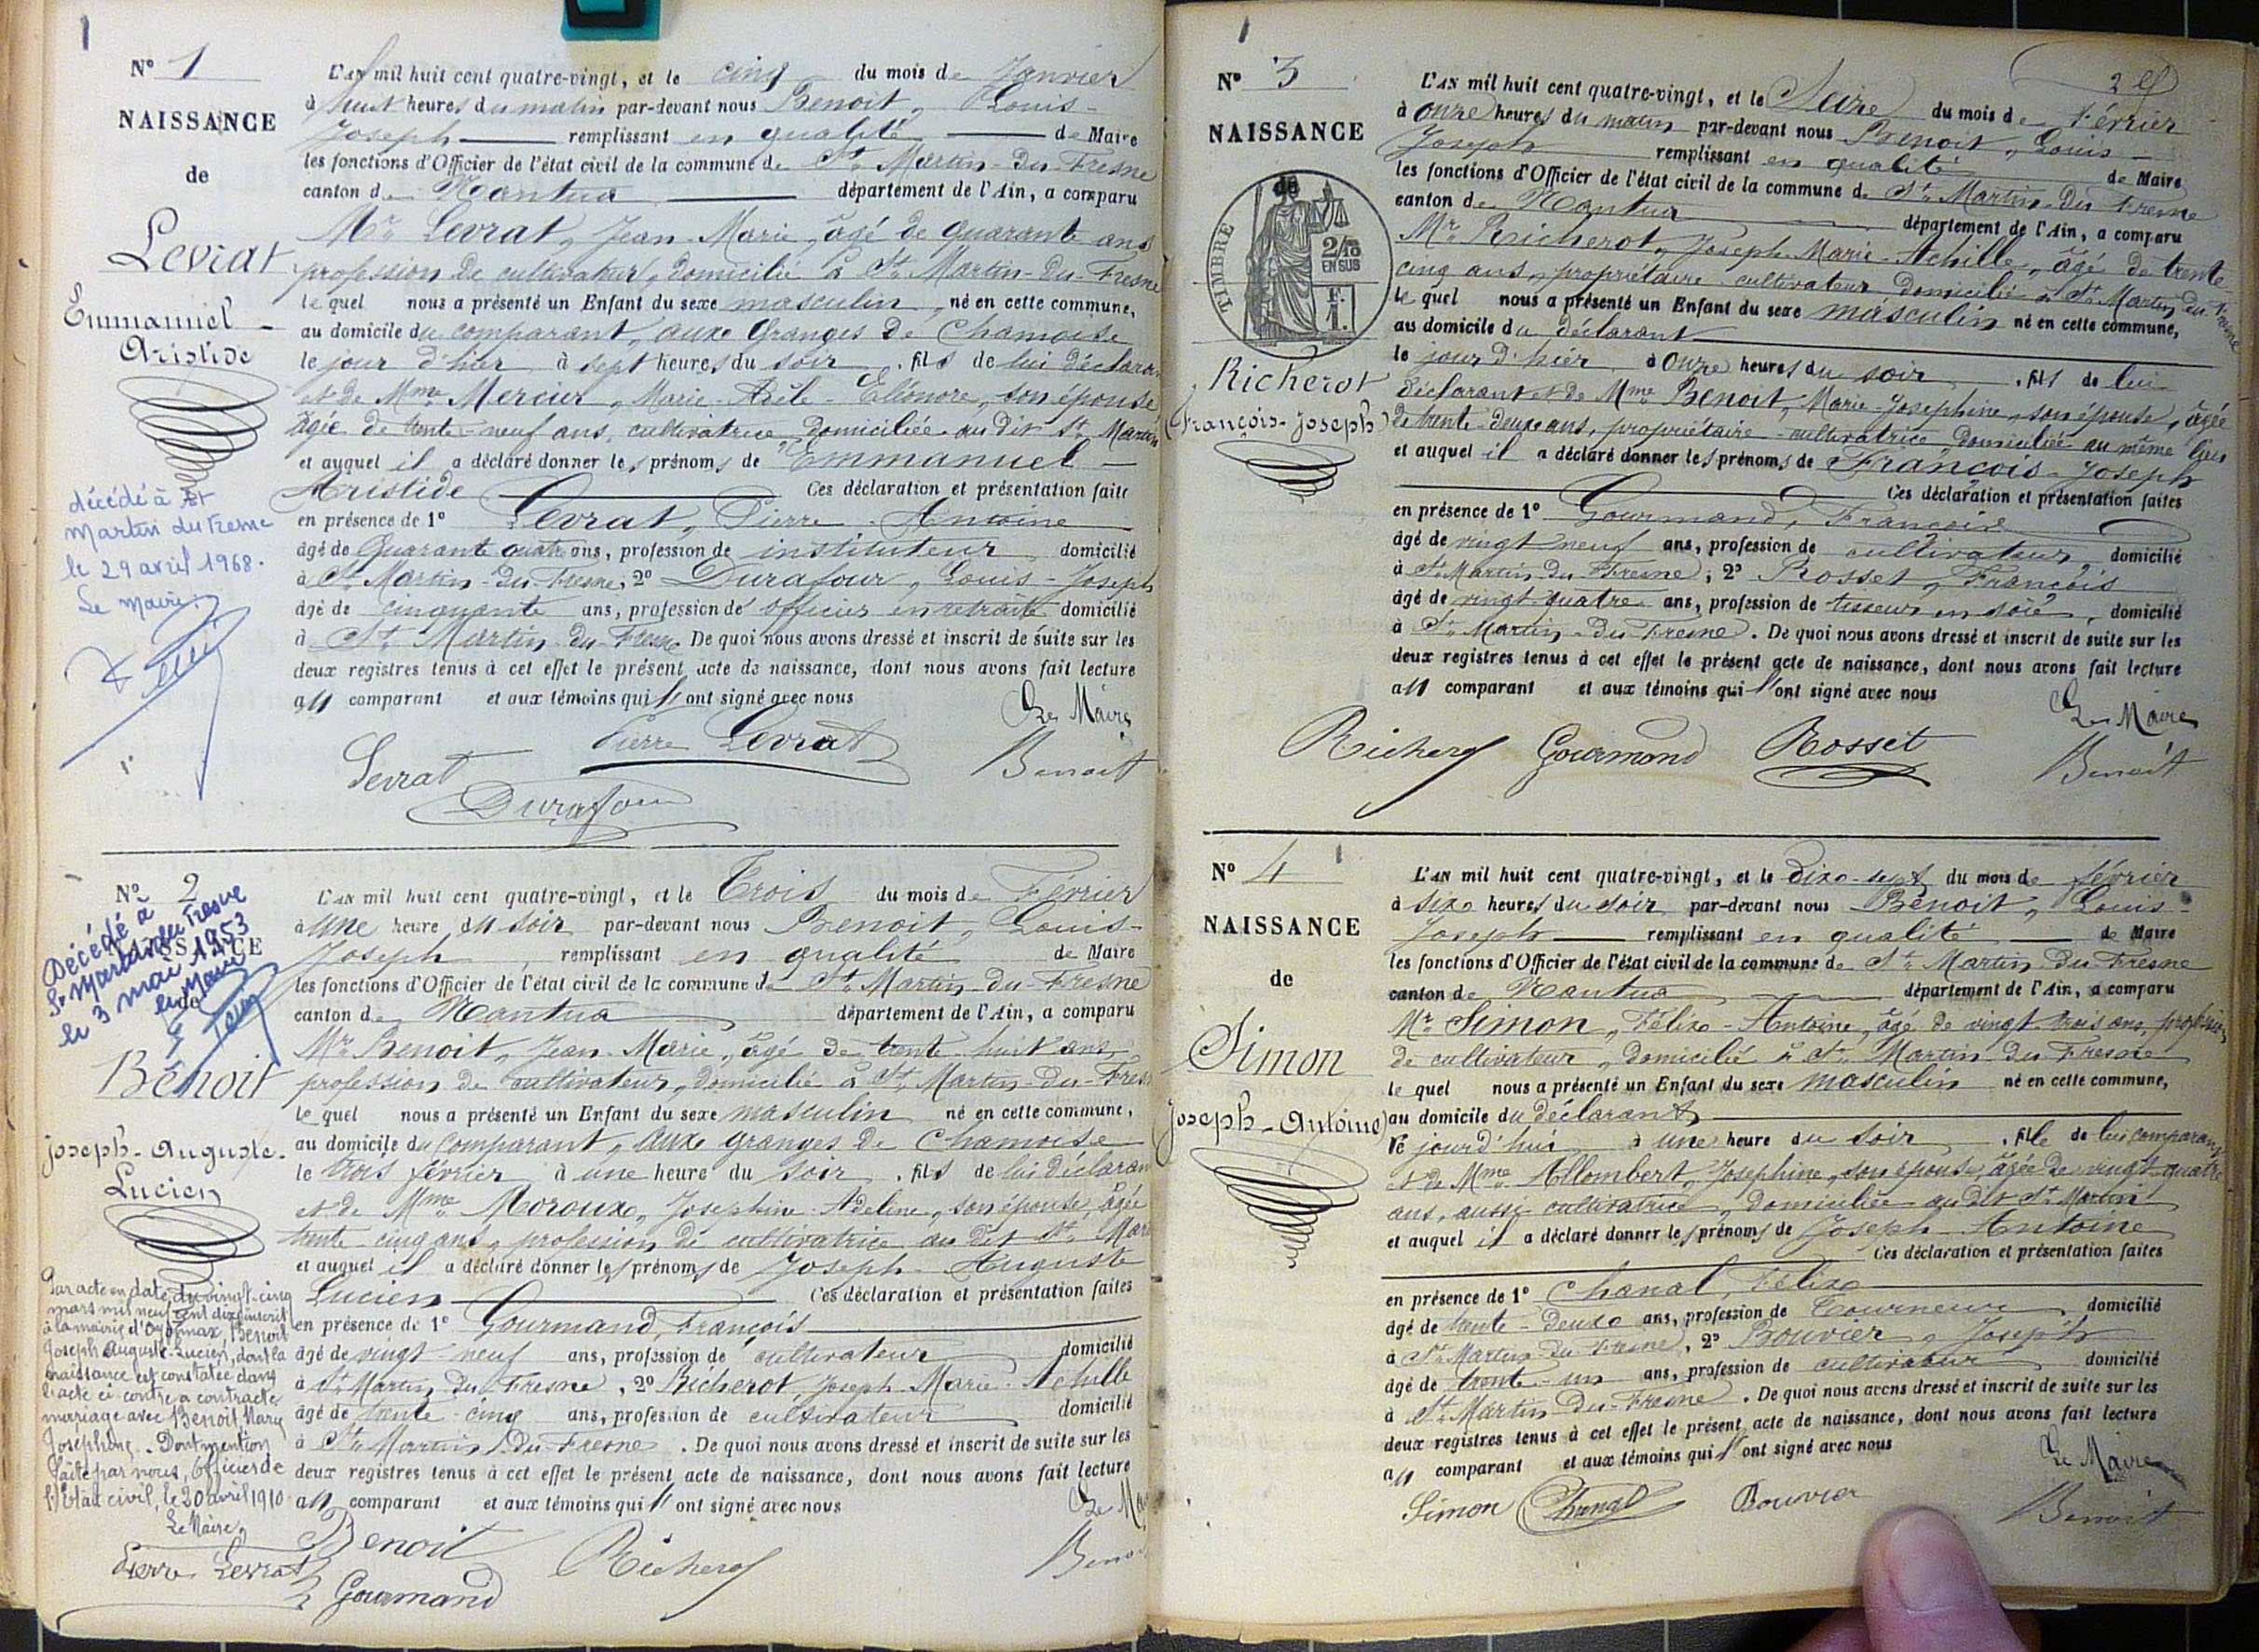 1
Nº 1
NAISSANCE
de
Levrat
Emmanuel -
Aristide
décédé à St
Martin du Fresne
le 29 avril 1968.
Le Maire:
L'AN mil huit cent quatre-vingt, et le cinq du mois de Janvier
à huit heures du matin par-devant nous Benoit, Louis-
Joseph remplissant en qualité de Maire
les fonctions d'Officier de l'état civil de la commune de St Martin-du-Fresne
canton de Nantua département de l'Ain, a comparu
Mr Levrat, Jean-Marie, âgé de quarante ans
profession de cultivateur, domicilié à St Martin-du-Fresne
le quel nous a présenté un Enfant du sexe masculin, né en cette commune,
au domicile du comparant, aux Granges de Chamoise
le jour d'hier à sept heures du soir, fils de lui déclarant
et de Mme Mercier, Marie-Adèle-Eléonore, son épouse
âgée de trente-neuf ans, cultivatrice, domiciliée au dit St Martin
et auquel il a déclaré donner les prénoms de Emmanuel -
Aristide Ces déclaration et présentation faite
en présence de 1º Levrat, Pierre-Antoine
âgé de quarante quatre ans, profession de instituteur domicilié
à St Martin-du-Fresne, 2º Durafour, Louis-Joseph
âgé de cinquante ans, profession de officier en retraite domicilié
à St Martin-du-Fresne De quoi nous avons dressé et inscrit de suite sur les
deux registres tenus à cet effet le présent acte de naissance, dont nous avons fait lecture
au comparant et aux témoins qui l'ont signé avec nous
Le Maire
Levrat Pierre Levrat Benoit
Durafour
Nº 2
NAISSANCE
de
Décédé à
St Martin du Fresne
le 3 mai 1953
le Maire
Benoit
Joseph-Auguste-
Lucien
Par acte en date du vingt-cinq
mars mil neuf cent dix inscrit
à la mairie d'Oyonnax, Benoit
Joseph Auguste-Lucien, dont la
naissance est constatée dans
l'acte ci-contre a contracté
mariage avec Benoit Mary
Joséphine. Dont mention
faite par nous, Officier de
l'Etat civil, le 20 avril 1910
Le Maire,
Pierre Levrat
L'AN mil huit cent quatre-vingt, et le Trois du mois de Février
à une heure du soir par-devant nous Benoit, Louis-
Joseph, remplissant en qualité de Maire
les fonctions d'Officier de l'état civil de la commune de St Martin-du-Fresne
canton de Nantua département de l'Ain, a comparu
Mr Benoit, Jean-Marie, âgé de trente-huit ans
profession de cultivateur, domicilié à St Martin-du-Fresne
le quel nous a présenté un Enfant du sexe masculin né en cette commune,
au domicile du comparant, aux granges de Chamoise
le trois février à une heure du soir, fils de lui déclarant
et de Mme Moroux, Josephine-Adeline, son épouse, âgée
trente-cinq ans, profession de cultivatrice au dit St Martin
et auquel il a déclaré donner les prénoms de Joseph-Auguste
Lucien Ces déclaration et présentation faites
en présence de 1º Gourmand, François
âgé de vingt-neuf ans, profession de cultivateur domicilié
à St Martin-du-Fresne, 2º Richerot, Joseph-Marie-Achille
âgé de trente-cinq ans, profession de cultivateur domicilié
à St Martin-du-Fresne. De quoi nous avons dressé et inscrit de suite sur les
deux registres tenus à cet effet le présent acte de naissance, dont nous avons fait lecture
au comparant et aux témoins qui l'ont signé avec nous
Le Maire
Benoit Richerot Benoit
Gourmand
1
Nº 3
NAISSANCE
de
TIMBRE
2/10
EN SUS
F.
1.
Richerot
(François-Joseph)
2
L'AN mil huit cent quatre-vingt, et le Seize du mois de Février
à onze heures du matin par-devant nous Benoit, Louis-
Joseph remplissant en qualité de Maire
les fonctions d'Officier de l'état civil de la commune de St Martin-du-Fresne
canton de Nantua département de l'Ain, a comparu
Mr Richerot, Joseph-Marie-Achille, âgé de trente-
cinq ans, propriétaire cultivateur domicilié à St Martin-du-Fresne
le quel nous a présenté un Enfant du sexe masculin né en cette commune,
au domicile du déclarant
le jour d'hier à onze heures du soir, fils de lui
déclarant et de Mme Benoit, Marie-Josephine, son épouse, âgée
de trente-deux ans, propriétaire-cultivatrice, domiciliée au même lieu
et auquel il a déclaré donner les prénoms de François-Joseph
Ces déclaration et présentation faites
en présence de 1º Gourmand, François
âgé de vingt neuf ans, profession de cultivateur domicilié
à St Martin du Fresne; 2º Rosset, François
âgé de vingt-quatre ans, profession de tisseur en soie, domicilié
à St Martin-du-Fresne. De quoi nous avons dressé et inscrit de suite sur les
deux registres tenus à cet effet le présent acte de naissance, dont nous avons fait lecture
au comparant et aux témoins qui l'ont signé avec nous
Le Maire
Richerot Gourmand Rosset Benoit
Nº 4
NAISSANCE
de
Simon
Joseph-Antoine)
L'AN mil huit cent quatre-vingt, et le Dix-sept du mois de février
à six heures du soir par-devant nous Benoit, Louis-
Joseph remplissant en qualité de Maire
les fonctions d'Officier de l'état civil de la commune de St Martin-du-Fresne
canton de Nantua département de l'Ain, a comparu
Mr Simon, Félix-Antoine, âgé de vingt-trois ans, profession
de cultivateur, domicilié à St Martin-du-Fresne
le quel nous a présenté un Enfant du sexe masculin né en cette commune,
au domicile du déclarant
ce jourd'hui à une heure du soir, fils de lui comparant
et de Mme Allombert, Josephine, son épouse, âgée de vingt-quatre
ans, aussi cultivatrice, domiciliée au dit St Martin
et auquel il a déclaré donner les prénoms de Joseph-Antoine
Ces déclaration et présentation faites
en présence de 1º Chanal, Félix
âgé de trente-deux ans, profession de Tourneur domicilié
à St Martin-du-Fresne, 2º Bouvier, Joseph
âgé de trente-un ans, profession de cultivateur domicilié
à St Martin-Du-Fresne. De quoi nous avons dressé et inscrit de suite sur les
deux registres tenus à cet effet le présent acte de naissance, dont nous avons fait lecture
au comparant et aux témoins qui l'ont signé avec nous
Le Maire
Simon Chanal Bouvier Benoit